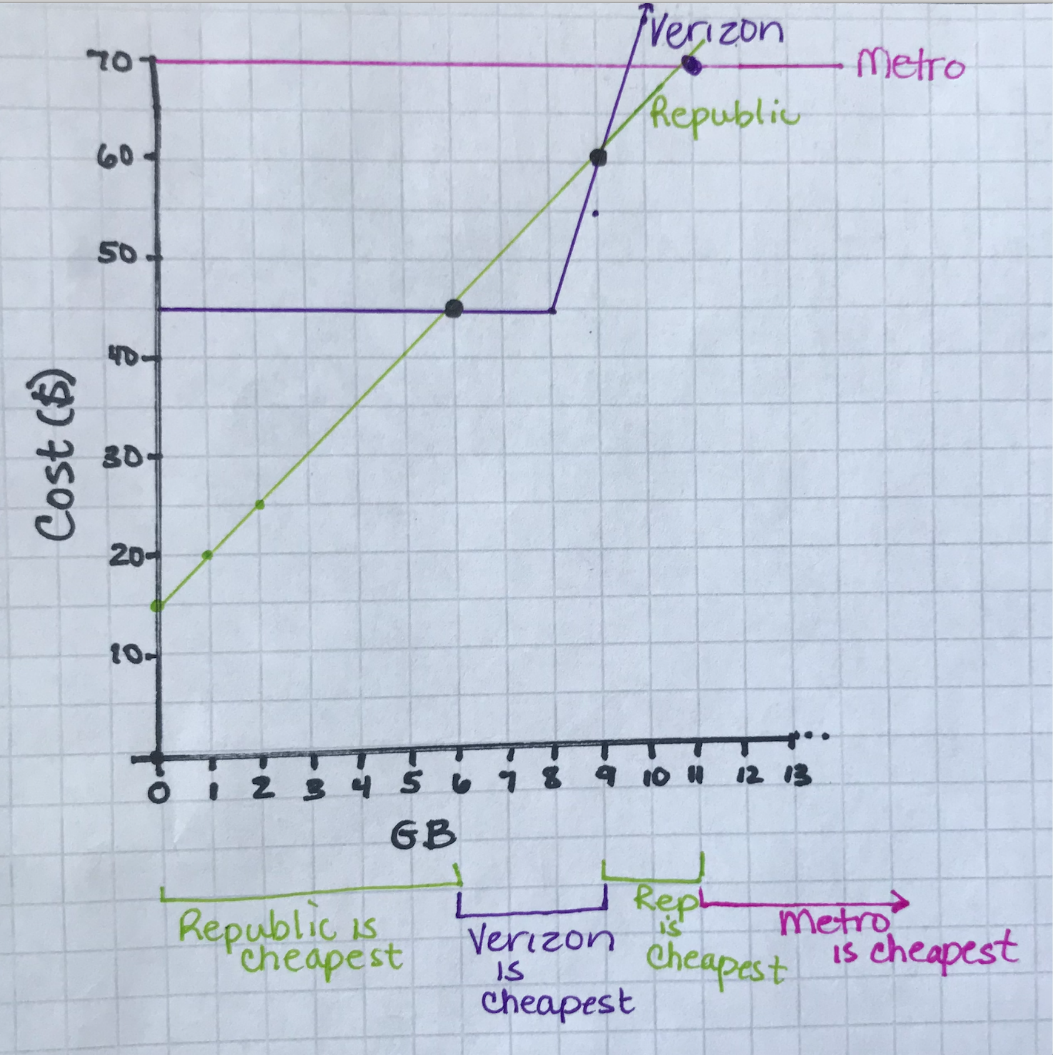 Verizon
70
Metro
Republic
60
50
40
30
20
10
Cost ($)
0 1 2 3 4 5 6 7 8 9 10 11 12 13 ...
GB
Republic is
cheapest
Verizon
is
cheapest
Rep
is
cheapest
Metro
is cheapest